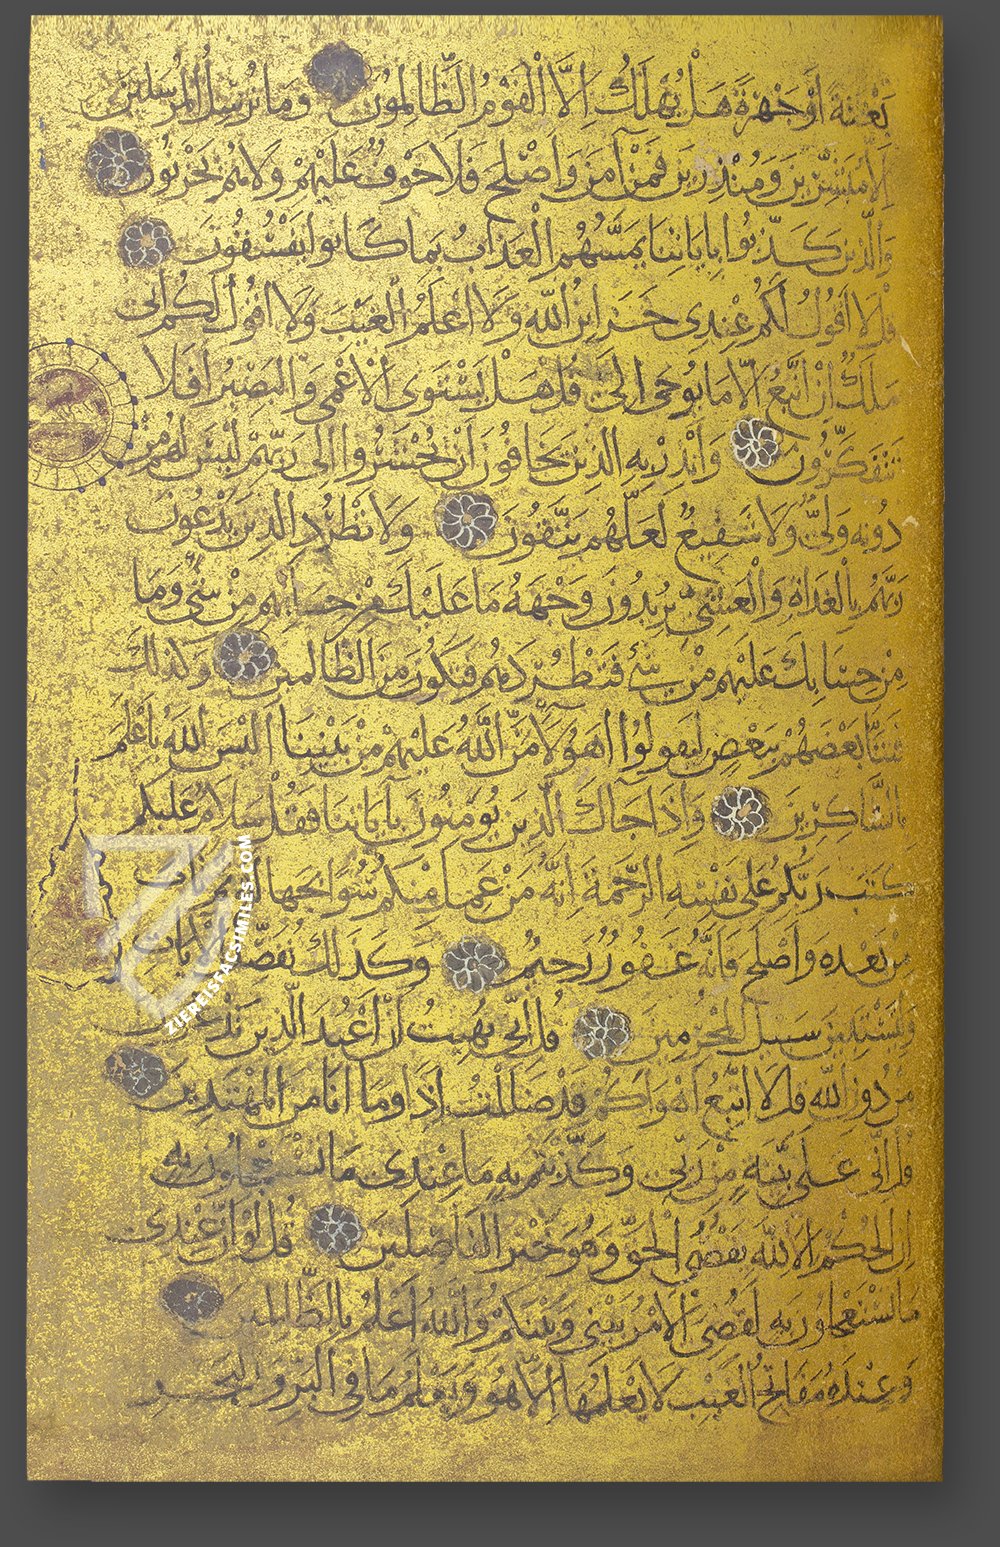 بَغْتَةً أَوْ جَهْرَةً هَلْ يُهْلَكُ إِلَّا الْقَوْمُ الظَّالِمُونَ وَمَا نُرْسِلُ الْمُرْسَلِينَ
إِلَّا مُبَشِّرِينَ وَمُنْذِرِينَ فَمَنْ آمَنَ وَأَصْلَحَ فَلَا خَوْفٌ عَلَيْهِمْ وَلَا هُمْ يَحْزَنُونَ
وَالَّذِينَ كَذَّبُوا بِآيَاتِنَا يَمَسُّهُمُ الْعَذَابُ بِمَا كَانُوا يَفْسُقُونَ
قُلْ لَا أَقُولُ لَكُمْ عِنْدِي خَزَايِنُ اللَّهِ وَلَا أَعْلَمُ الْغَيْبَ وَلَا أَقُولُ لَكُمْ إِنِّي
مَلَكٌ إِنْ أَتَّبِعُ إِلَّا مَا يُوحَى إِلَيَّ قُلْ هَلْ يَسْتَوِي الْأَعْمَى وَالْبَصِيرُ أَفَلَا
تَتَفَكَّرُونَ وَأَنْذِرْ بِهِ الَّذِينَ يَخَافُونَ أَنْ يُحْشَرُوا إِلَى رَبِّهِمْ لَيْسَ لَهُمْ مِنْ
دُونِهِ وَلِيٌّ وَلَا شَفِيعٌ لَعَلَّهُمْ يَتَّقُونَ وَلَا تَطْرُدِ الَّذِينَ يَدْعُونَ
رَبَّهُمْ بِالْغَدَاةِ وَالْعَشِيِّ يُرِيدُونَ وَجْهَهُ مَا عَلَيْكَ مِنْ حِسَابِهِمْ مِنْ شَيْءٍ وَمَا
مِنْ حِسَابِكَ عَلَيْهِمْ مِنْ شَيْءٍ فَتَطْرُدَهُمْ فَتَكُونَ مِنَ الظَّالِمِينَ وَكَذَلِكَ
فَتَنَّا بَعْضَهُمْ بِبَعْضٍ لِيَقُولُوا أَهَؤُلَاءِ مَنَّ اللَّهُ عَلَيْهِمْ مِنْ بَيْنِنَا أَلَيْسَ اللَّهُ بِأَعْلَمَ
بِالشَّاكِرِينَ وَإِذَا جَاءَكَ الَّذِينَ يُؤْمِنُونَ بِآيَاتِنَا فَقُلْ سَلَامٌ عَلَيْكُمْ
كَتَبَ رَبُّكُمْ عَلَى نَفْسِهِ الرَّحْمَةَ إِنَّهُ مَنْ عَمِلَ مِنْكُمْ سُوءًا بِجَهَالَةٍ ثُمَّ تَابَ
مِنْ بَعْدِهِ وَأَصْلَحَ فَإِنَّهُ غَفُورٌ رَحِيمٌ وَكَذَلِكَ نُفَصِّلُ الْآيَاتِ
وَلِتَسْتَبِينَ سَبِيلُ الْمُجْرِمِينَ قُلْ إِنِّي نُهِيتُ أَنْ أَعْبُدَ الَّذِينَ تَدْعُونَ
مِنْ دُونِ اللَّهِ قُلْ لَا أَتَّبِعُ أَهْوَاءَكُمْ قَدْ ضَلَلْتُ إِذًا وَمَا أَنَا مِنَ الْمُهْتَدِينَ
قُلْ إِنِّي عَلَى بَيِّنَةٍ مِنْ رَبِّي وَكَذَّبْتُمْ بِهِ مَا عِنْدِي مَا تَسْتَعْجِلُونَ بِهِ
إِنِ الْحُكْمُ إِلَّا لِلَّهِ يَقُصُّ الْحَقَّ وَهُوَ خَيْرُ الْفَاصِلِينَ قُلْ لَوْ أَنَّ عِنْدِي
مَا تَسْتَعْجِلُونَ بِهِ لَقُضِيَ الْأَمْرُ بَيْنِي وَبَيْنَكُمْ وَاللَّهُ أَعْلَمُ بِالظَّالِمِينَ
وَعِنْدَهُ مَفَاتِحُ الْغَيْبِ لَا يَعْلَمُهَا إِلَّا هُوَ وَيَعْلَمُ مَا فِي الْبَرِّ وَالْبَحْرِ
ZIEREISFACSIMILES.COM